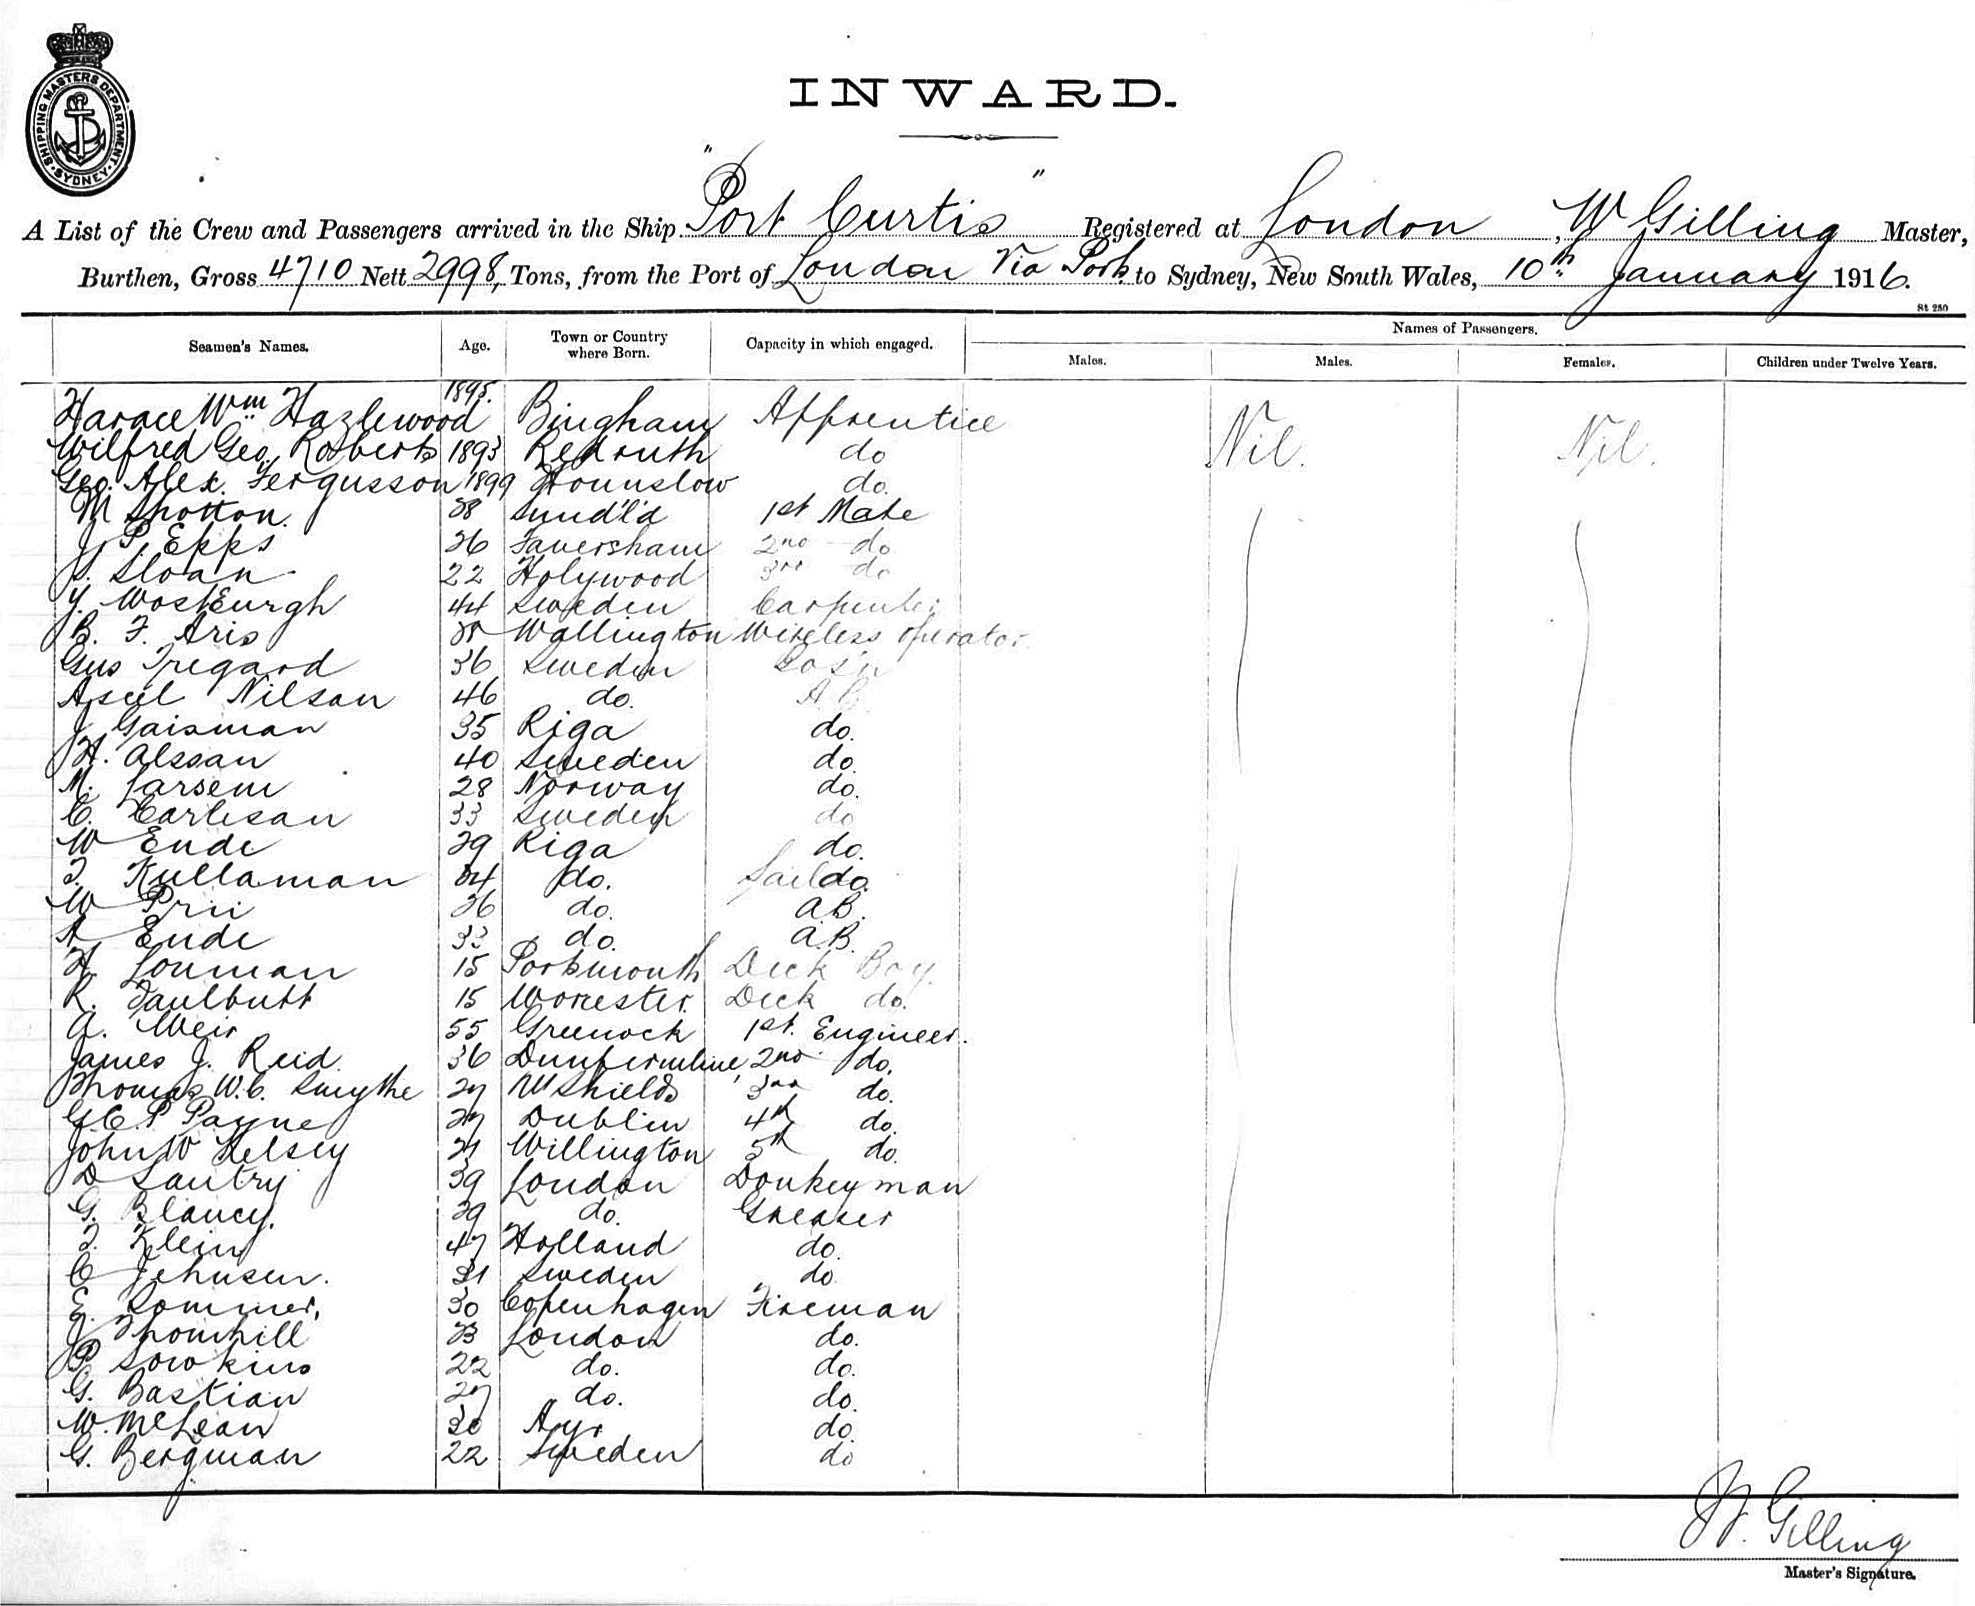 SHIPPING MASTERS DEPARTMENT
SYDNEY
INWARD.
A List of the Crew and Passengers arrived in the Ship "Port Curtis" Registered at London, W Gilling Master,
Burthen, Gross 4710 Nett 2998, Tons, from the Port of London Via Ports to Sydney, New South Wales, 10th January 1916.
St 250
Names of Passengers.
Seamen's Names. Age. Town or Country where Born. Capacity in which engaged. Males. Males. Females. Children under Twelve Years.
Horace Wm Hazlewood 1895. Bingham Apprentice Nil. Nil.
Wilfred Geo. Roberts 1893 Redruth do
Geo. Alex. Fergusson 1899 Hounslow do.
M Shotton. 38 Sund'l'd 1st Mate
J. P. Epps 26 Faversham 2nd do
S. Sloan 22 Holywood 3rd do
Y. Wosteurgh 44 Sweden Carpenter
B. F. Aris Wallington Wireless operator.
Gus Tregard 36 Sweden Bos'n
Axel Nilson 46 do. A B.
J. Gaisman 35 Riga do.
H. Alssan 40 Sweden do.
M. Larsem 28 Norway do.
C. Carlesan 33 Sweden do
W Ende 29 Riga do.
T. Kullaman 24 do. Sail do.
W Prii 26 do. A.B.
A Ende 33 do. A.B.
H. Louman 15 Portsmouth Deck Boy.
R. Faulbutt 15 Worcester Deck do.
A. Weir 55 Greenock 1st. Engineer.
James J. Reid. 36 Dunfermline, 2nd do.
Thomas W. C. Smythe 27 Nth Shields 3rd do.
G. C. P. Payne 27 Dublin 4th do.
John W Kelsey 21 Willington 5th do.
D Santry 39 London Donkeyman
G. Blancy. 39 do. Greaser
T. Klein 47 Holland do.
C Jehnsen. 31 Sweden do
E. Sommer, 30 Copenhagen Fireman
J. Thornhill 23 London do.
P. Sowkins 22 do. do.
G. Bastian 27 do. do.
W. McLean 30 Ayr do.
G. Bergman 22 Sweden do
W. Gilling
Master's Signature.